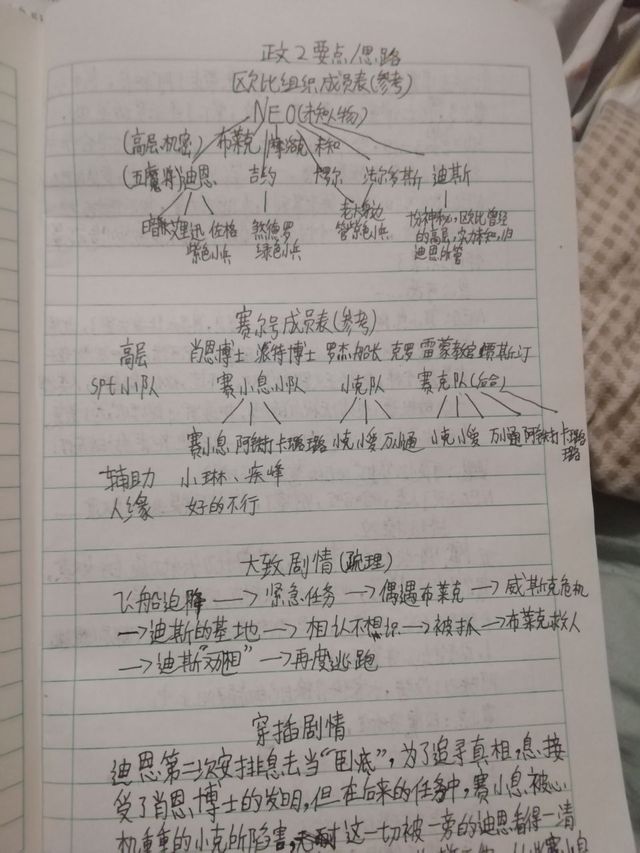 正文2要点/思路
欧比组织成员表(参考)
NEO(核心人物)
(高层机密) 布莱克 摩哈克 未知
(五魔将)迪恩 吉约 卡罗尔 法尔多斯 迪斯
艾里逊 佐格 紫色小兵
煞德罗 绿色小兵
老大身边 管紫色小兵
份神秘,欧比曾经
的高层,实力未知,归
迪恩所管
赛尔号成员表(参考)
高层 肖恩博士 派特博士 罗杰船长 克罗 雷蒙教官 贾斯汀
spt小队 赛小息小队 小克队 赛克队(结合)
赛小息 阿铁打 卡璐璐 小克 小爱 万小通 小克 小爱 万小通 阿铁打 卡璐璐
辅助 小琳、疾峰
人缘 好的不行
大致剧情(疏理)
飞船迫降→紧急任务→偶遇布莱克→威斯克危机
→迪斯的基地→相认不想识→被抓→布莱克救人
→迪斯"劝相"→再度逃跑
穿插剧情
迪恩第二次安排息去当"卧底",为了追寻真相,息接
受了肖恩博士的发明,但在后来的任务中,赛小息被心
机重重的小克所陷害,这一切被一旁的迪恩看得一清